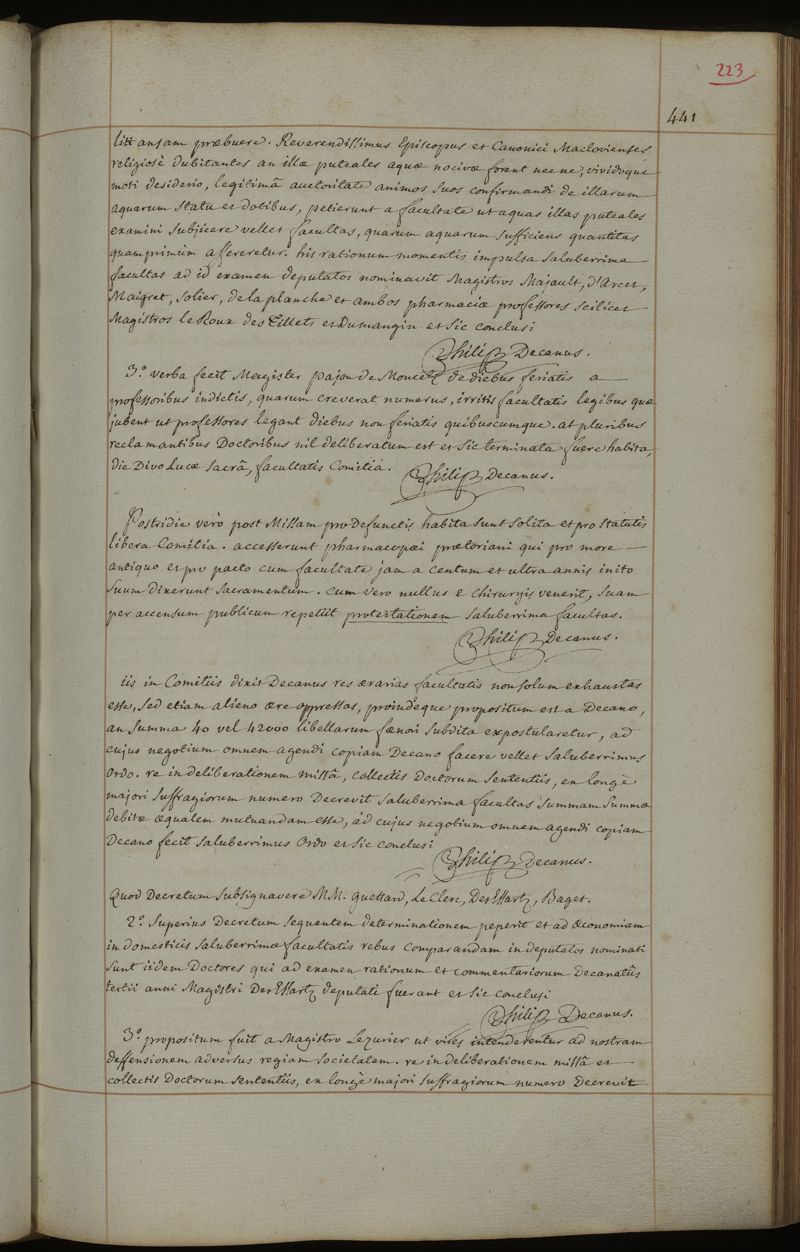 223
441
liti ansam præbuere. Reverendissimus Episcopus et Canonici Maclovienses
religiosè dubitantes an illæ puteales aquæ nocivæ forent necne, vividoque
moti desiderio, legitimâ auctoritate animos suos confirmandi de illarum
aquarum statu et dotibus, petierunt a facultate ut aquas illas puteales
examini subjicere vellet facultas, quarum aquarum sufficiens quantitas
quamprimùm afferetur. his rationum momentis impulsa saluberrima
facultas ad id examen deputatos nominavit Magistros Majault, d'Arcet,
Maigret, Solier, de la planche et ambos pharmaciæ professores scilicet
Magistros le Roux des Tillets et Dumangin et sic conclusi
Philip Decanus.
3.º verba fecit Magister pajon de Moncetz de diebus feriatis a
professoribus indictis, quarum creverat numerus, irritis facultatis legibus quæ
jubent ut professores legant diebus non feriatis quibuscumque. at pluribus
reclamantibus Doctoribus nil deliberatum est et sic terminata fuere habita,
die Divo Lucæ sacrâ, facultatis Comitia.
Philip Decanus.
Postridie verò post Missam pro Defunctis habita sunt solita et pro statutis
libera Comitia. accesserunt pharmacopæi prætoriani qui pro more
antiquo et pro pacto cum facultate jam a centum et ultra annis inito
suum dixerunt sacramentum. cum vero nullus e chirurgis venerit, suam
per accensum publicum repetiit protestationem saluberrima facultas.
Philip Decanus.
iis in Comitiis dixit Decanus res ærarias facultatis non solum exhaustas
esse, sed etiam alieno ære oppressas, proindeque propositum est a Decano,
an summa 40 vel 42000 libellarum fænori subdita expostularetur, ad
cujus negotium omnem agendi copiam Decano facere vellet saluberrimus
ordo. re in deliberationem missâ, collectis Doctorum sententiis, ex longè
majori suffragiorum numero Decrevit saluberrima facultas summam summæ
debitæ æqualem mutuandam esse, ad cujus negotium omnem agendi copiam
Decano fecit saluberrimus Ordo et sic conclusi
Philip decanus.
Quod Decretum subsignavere MM. Guettard, Le Clerc, Des Essartz, Baget.
2.º Superius Decretum sequentem determinationem peperit et ad œconomiam
in domesticis saluberrimæ facultatis rebus comparandam in deputatos nominati
sunt iidem Doctores qui ad examen rationum et commentariorum Decanatûs
tertii anni Magistri Des Essartz deputati fuerant et sic conclusi
Philip Decanus.
3.º propositum fuit a Magistro Lezurier ut vires intenderentur ad nostram
deffensionem adversus regiam societatem. re in deliberationem missâ et
collectis Doctorum sententiis, ex longè majori suffragiorum numero Decrevit